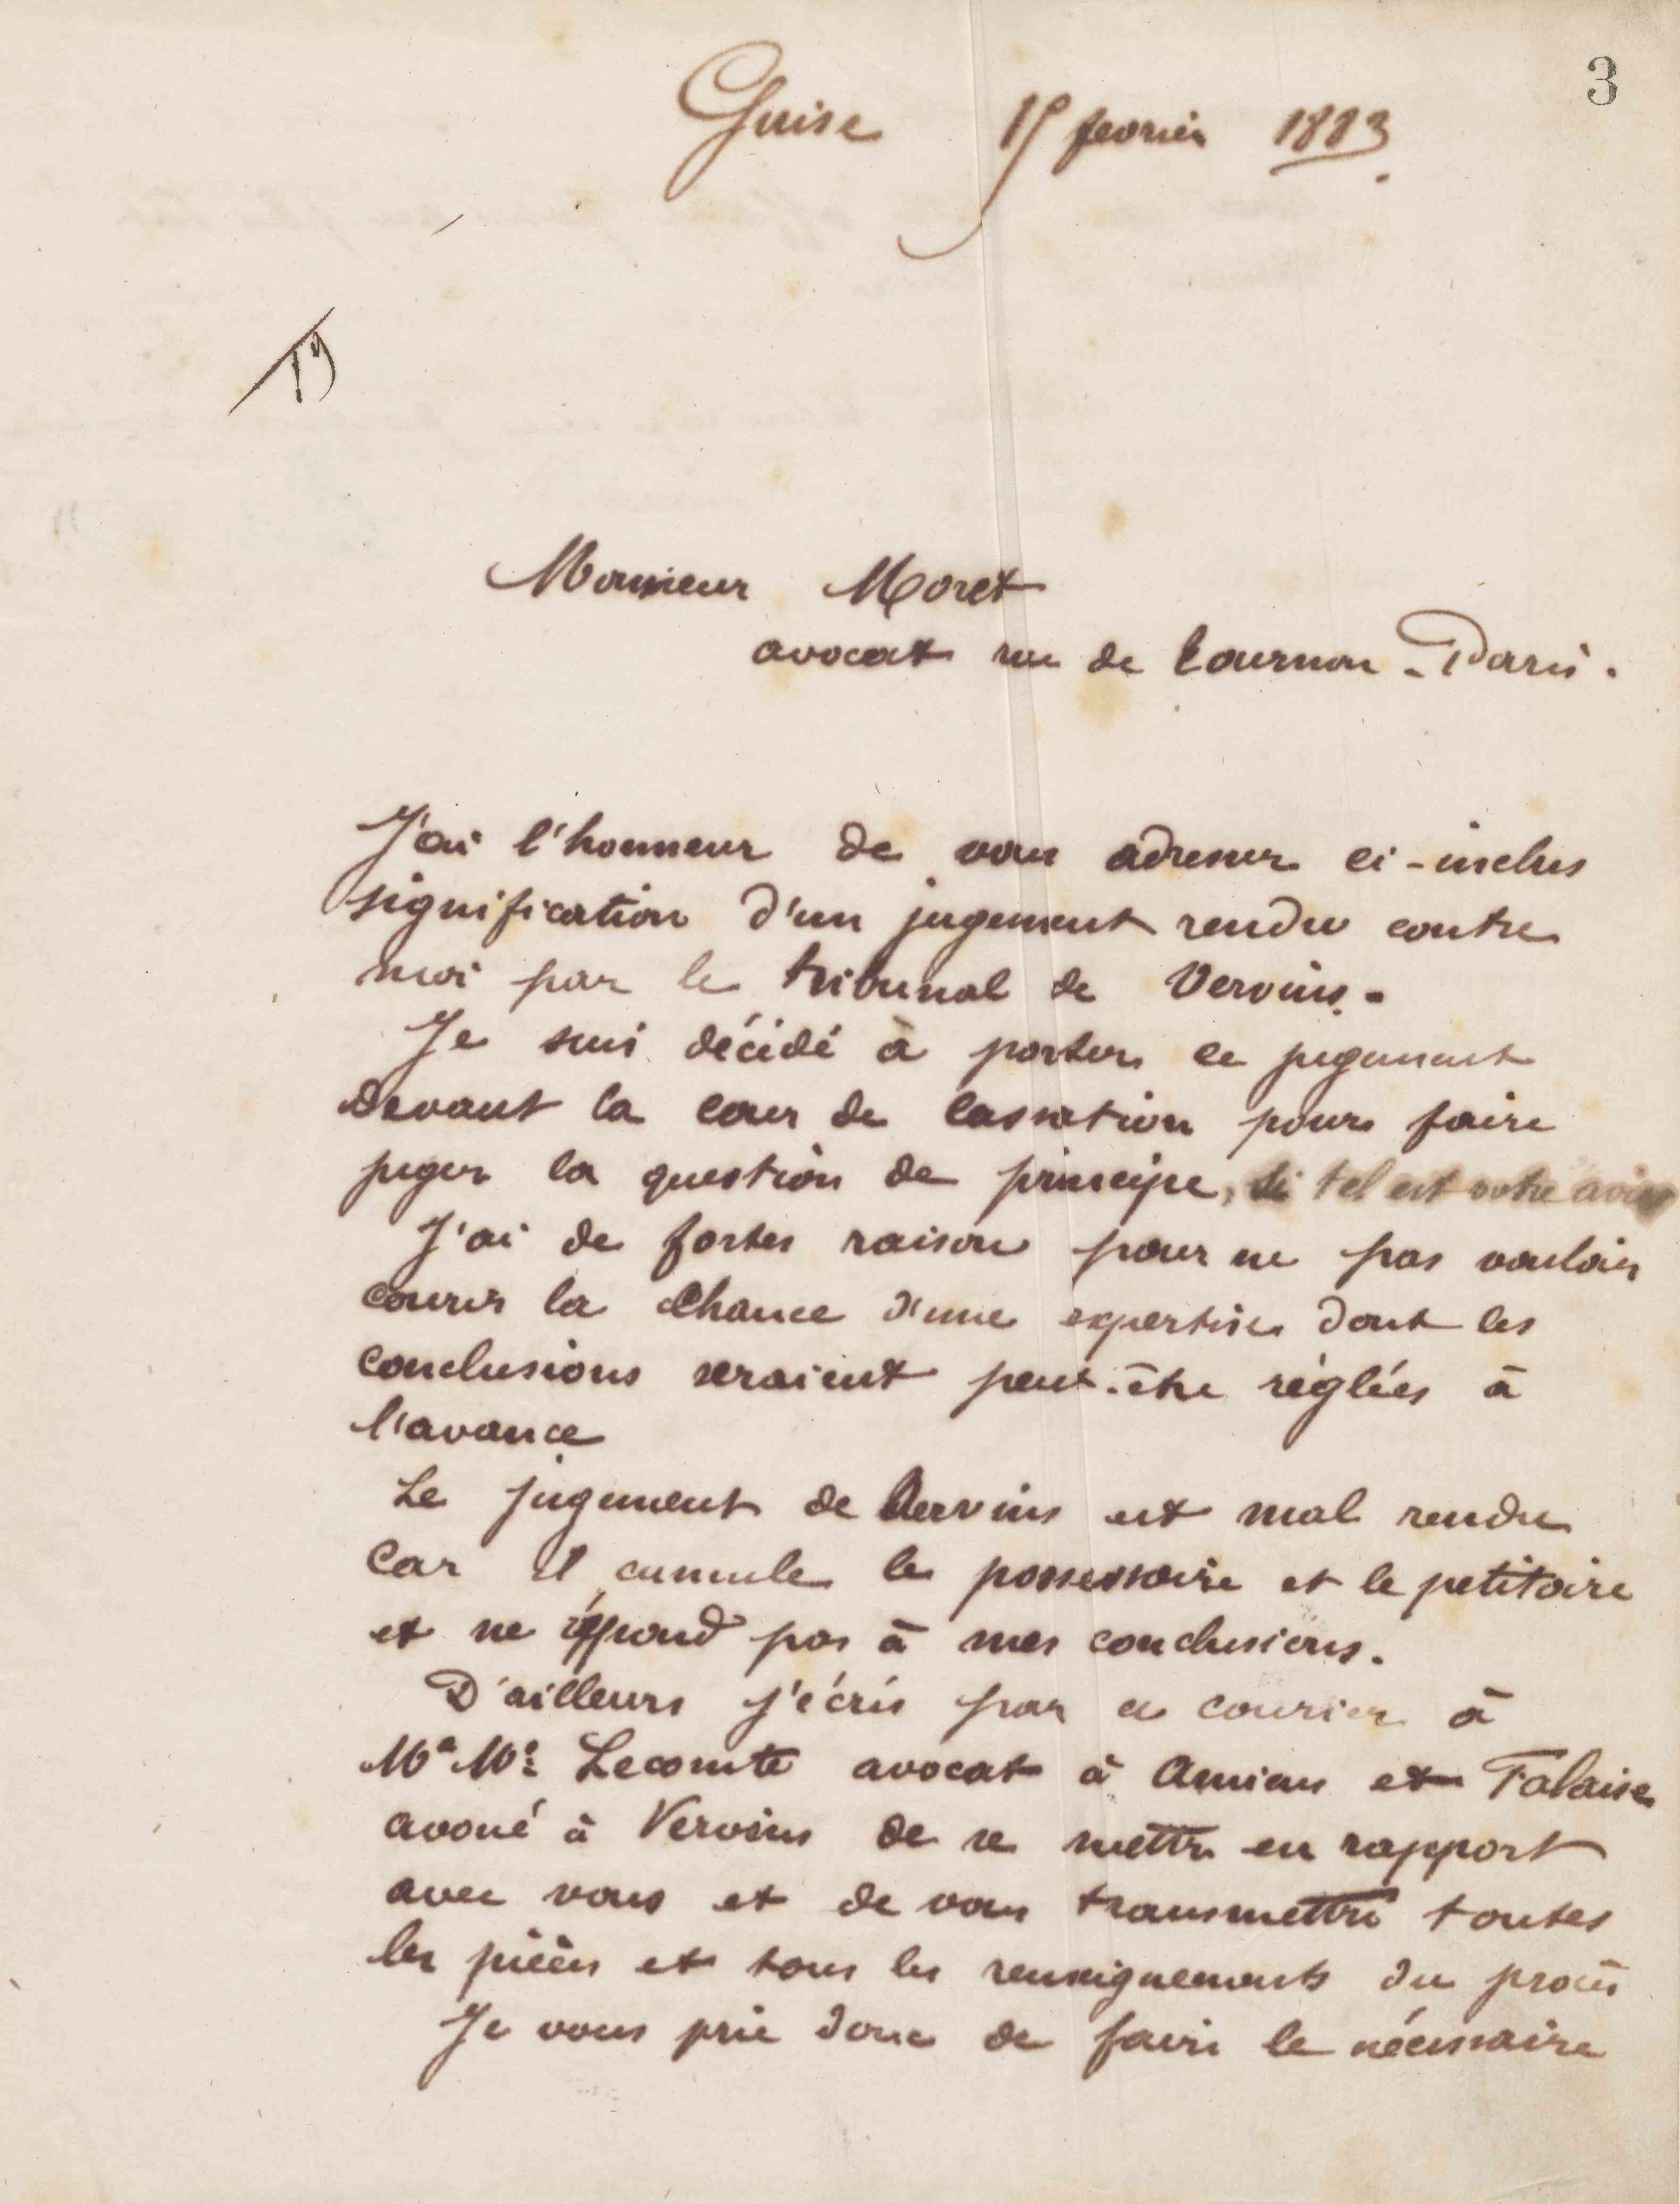 3
Guise 15 fevrier 1883.
19
Monsieur Moret
avocat rue de Tournon - Paris.
J'ai l'honneur de vous adresser ci-inclus
signification d'un jugement rendu contre
moi par le tribunal de Vervins.
Je suis décidé à porter ce jugement
devant la cour de Cassation pour faire
juger la question de principe, si tel est votre avis
J'ai de fortes raisons pour ne pas vouloir
courir la chance d'une expertise dont les
conclusions seraient peut-être réglées à
l'avance
Le jugement de Vervins est mal rendu
car il cumule le possessoire et le petitoire
et ne répond pas à mes conclusions.
D'ailleurs j'écris par ce courier à
Me Me Lecomte avocat à Amiens et Falaise
avoué à Vervins de se mettre en rapport
avec vous et de vous transmettre toutes
les pièces et tous les renseignements du procès
Je vous prie donc de faire le nécessaire